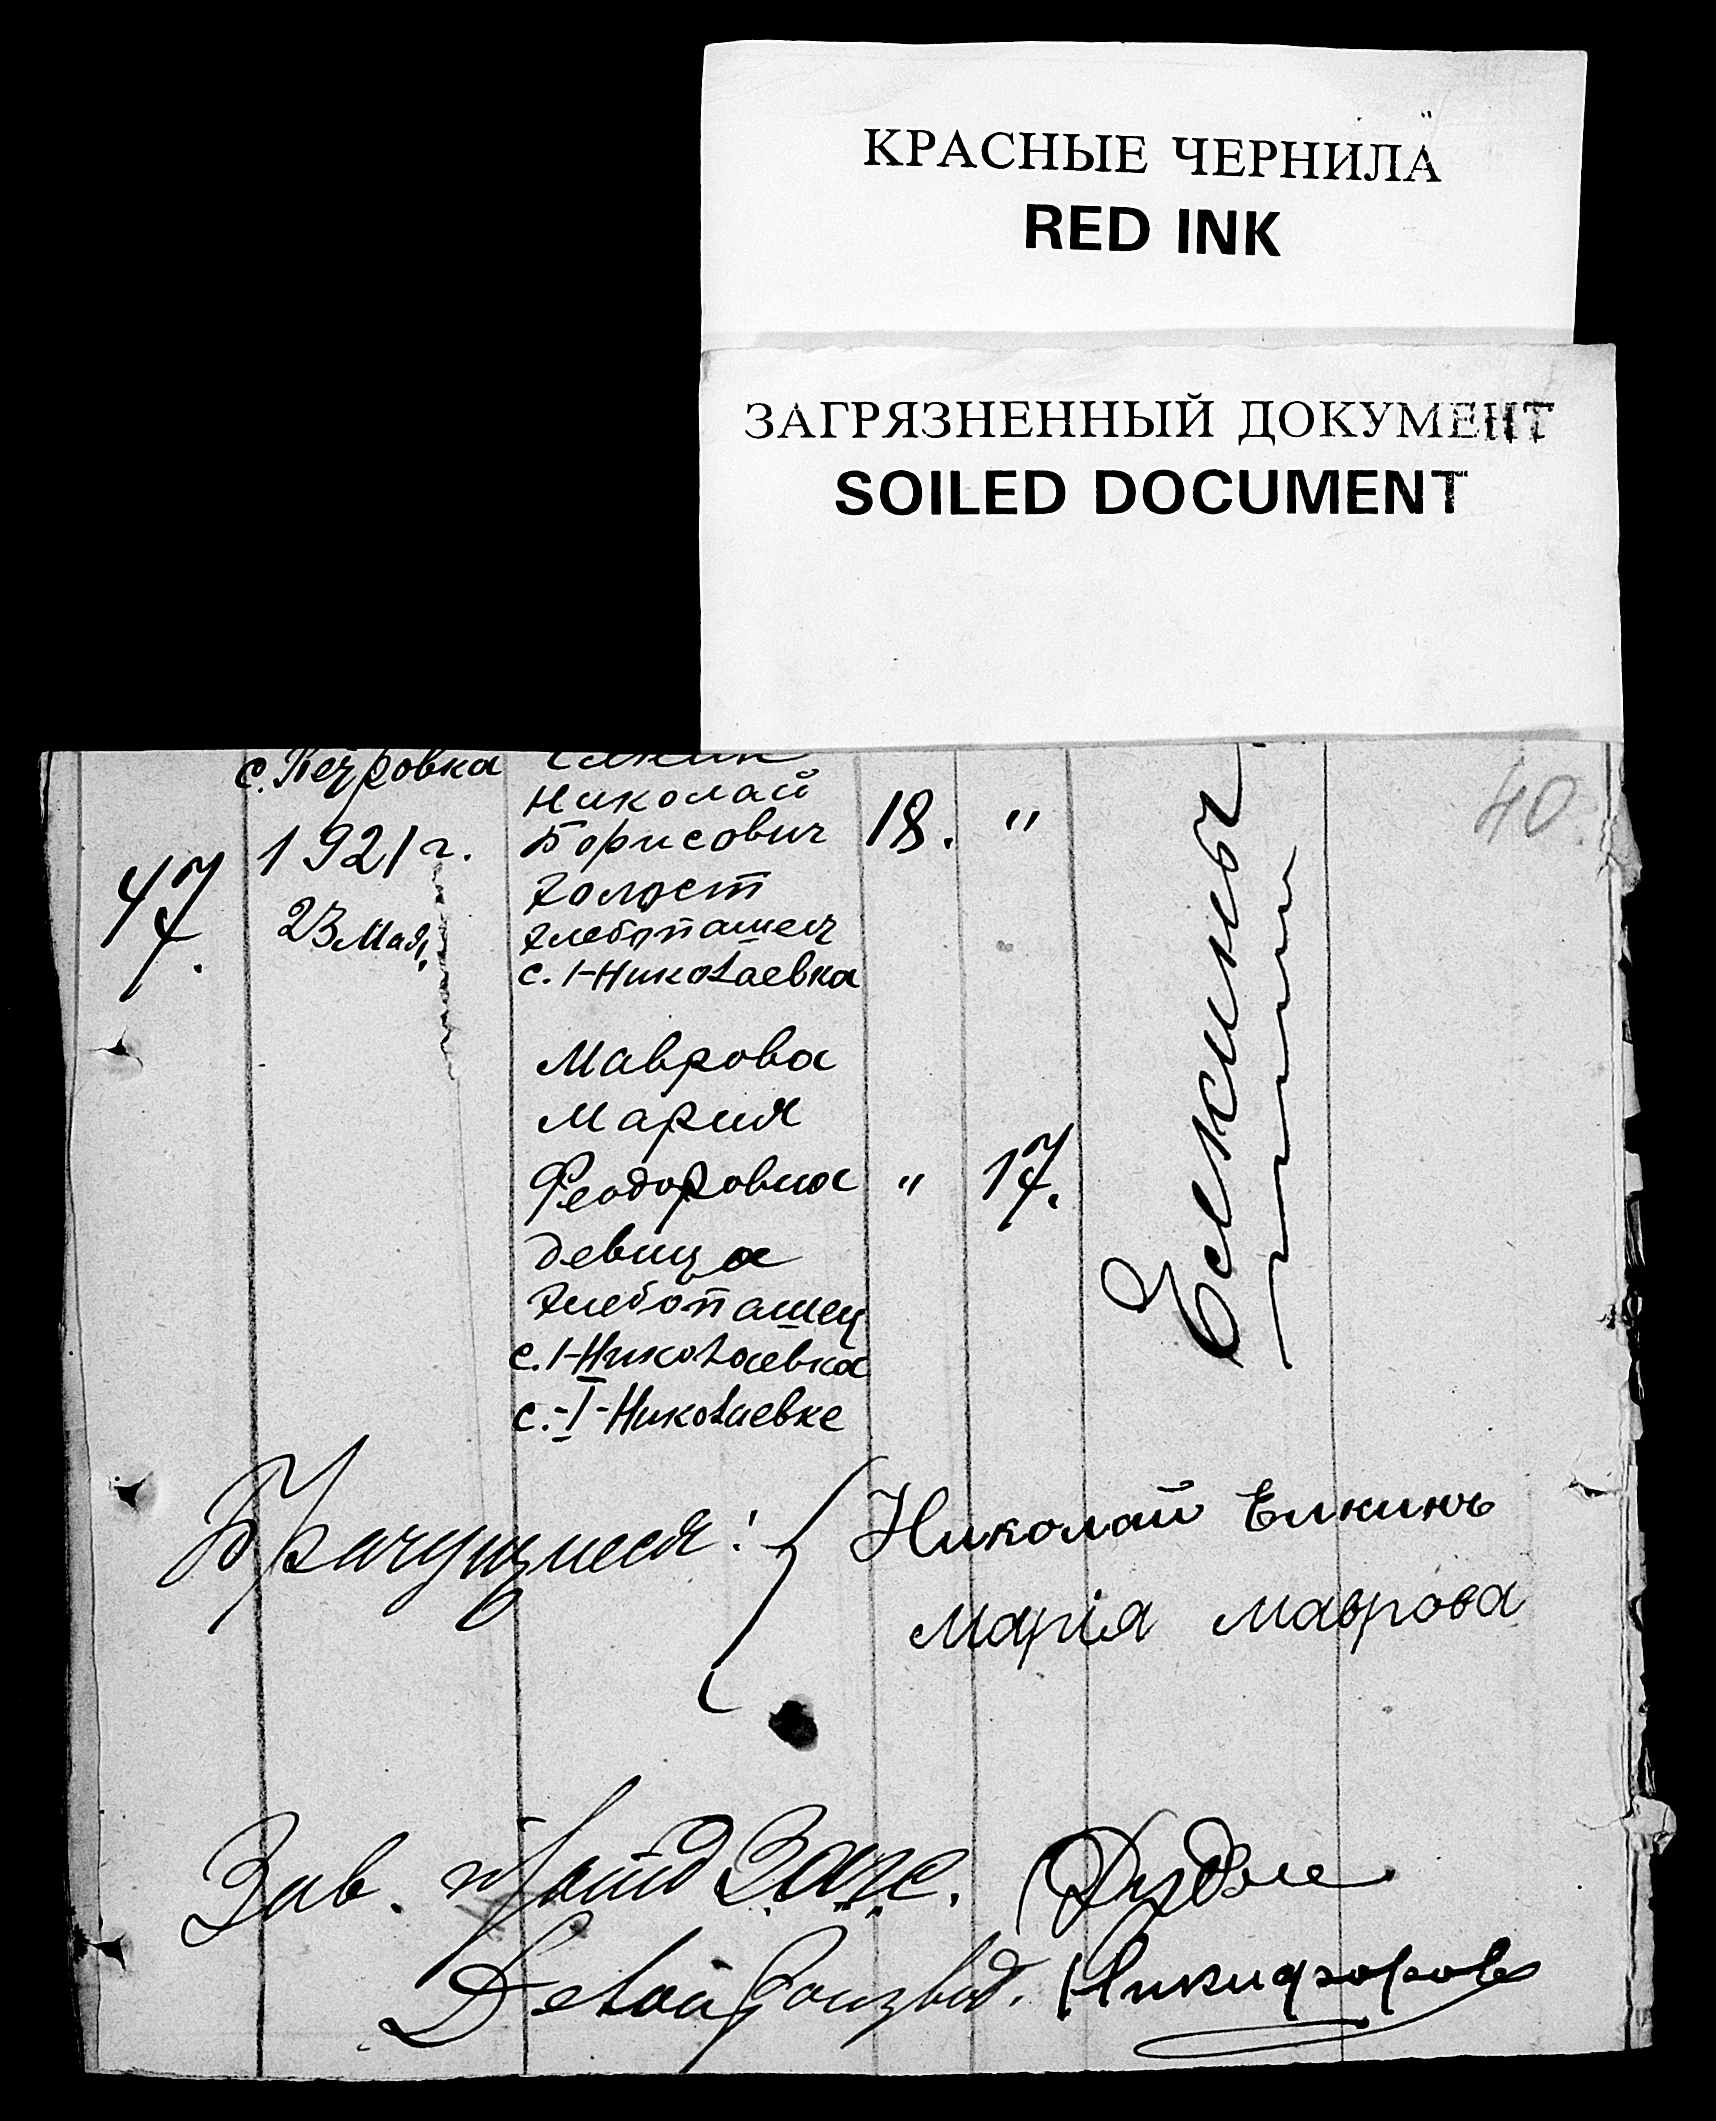 КРАСНЫЕ ЧЕРНИЛА
RED INK
ЗАГРЯЗНЕННЫЙ ДОКУМЕНТ
SOILED DOCUMENT
40
с. Петровка
47.
1921 г.
23 Мая.
Елкин
Николай
Борисович
холост
хлебопашец
с. I-Николаевка
18. "
Маврова
Мария
Феодоровна
девица
хлебопашец
с. I-Николаевка
с.-I-Николаевке
" 17.
Елкины
Брачущиеся: Николай Елкинъ
Марія Маврова
Зав. Загс.
Делопроизвод. Никифоров